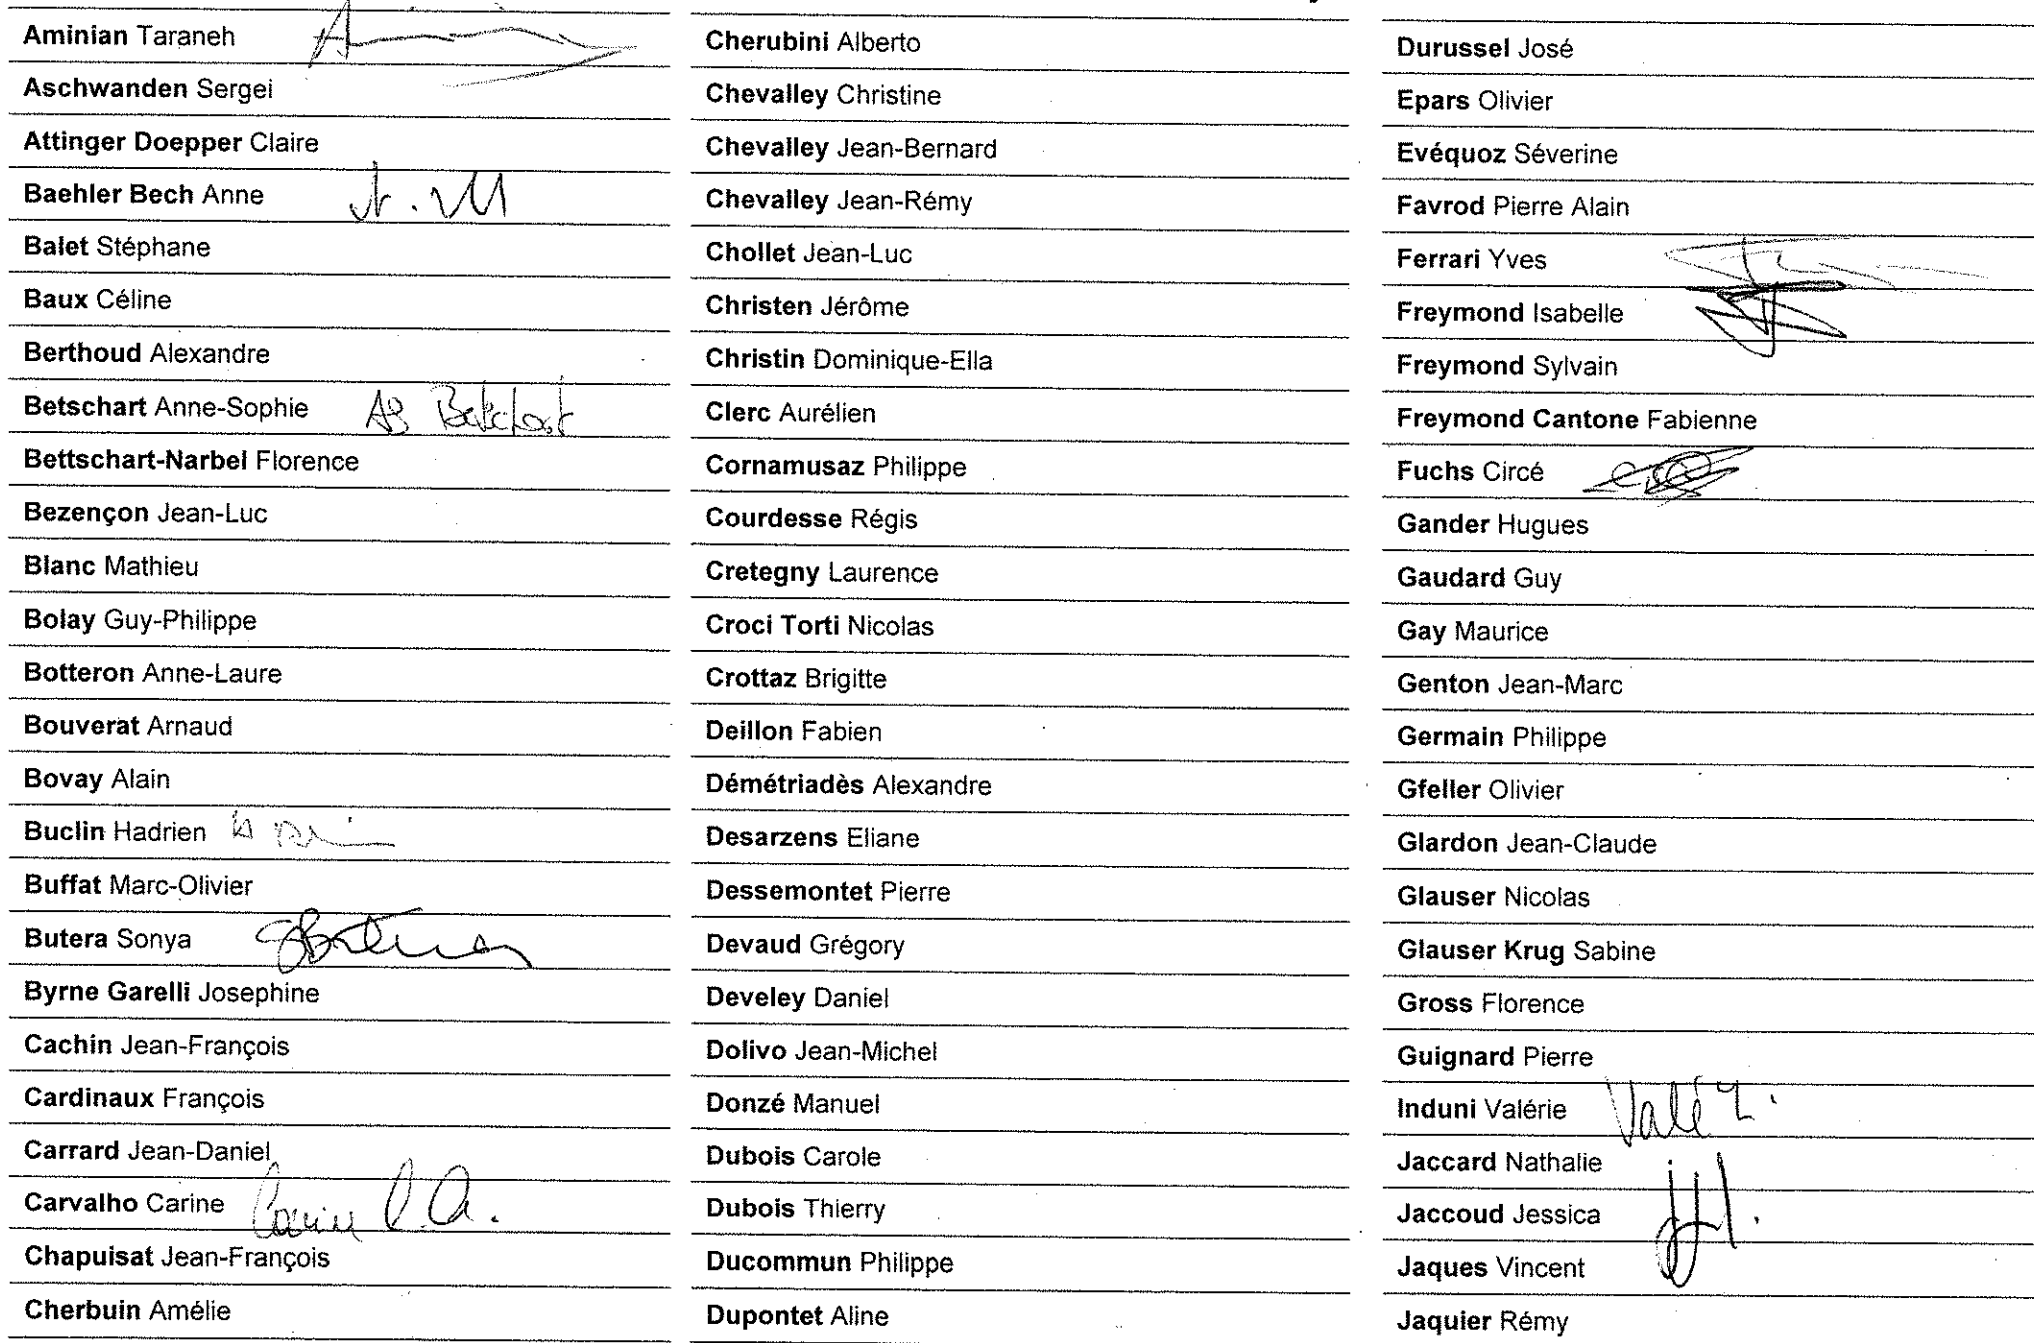 Aminian Taraneh
Aschwanden Sergei
Attinger Doepper Claire
Baehler Bech Anne
Balet Stéphane
Baux Céline
Berthoud Alexandre
Betschart Anne-Sophie AS Betschart
Bettschart-Narbel Florence
Bezençon Jean-Luc
Blanc Mathieu
Bolay Guy-Philippe
Botteron Anne-Laure
Bouverat Arnaud
Bovay Alain
Buclin Hadrien
Buffat Marc-Olivier
Butera Sonya
Byrne Garelli Josephine
Cachin Jean-François
Cardinaux François
Carrard Jean-Daniel
Carvalho Carine Carine
Chapuisat Jean-François
Cherbuin Amélie
Cherubini Alberto
Chevalley Christine
Chevalley Jean-Bernard
Chevalley Jean-Rémy
Chollet Jean-Luc
Christen Jérôme
Christin Dominique-Ella
Clerc Aurélien
Cornamusaz Philippe
Courdesse Régis
Cretegny Laurence
Croci Torti Nicolas
Crottaz Brigitte
Deillon Fabien
Démétriadès Alexandre
Desarzens Eliane
Dessemontet Pierre
Devaud Grégory
Develey Daniel
Dolivo Jean-Michel
Donzé Manuel
Dubois Carole
Dubois Thierry
Ducommun Philippe
Dupontet Aline
Durussel José
Epars Olivier
Evéquoz Séverine
Favrod Pierre Alain
Ferrari Yves
Freymond Isabelle
Freymond Sylvain
Freymond Cantone Fabienne
Fuchs Circé
Gander Hugues
Gaudard Guy
Gay Maurice
Genton Jean-Marc
Germain Philippe
Gfeller Olivier
Glardon Jean-Claude
Glauser Nicolas
Glauser Krug Sabine
Gross Florence
Guignard Pierre
Induni Valérie
Jaccard Nathalie
Jaccoud Jessica
Jaques Vincent
Jaquier Rémy